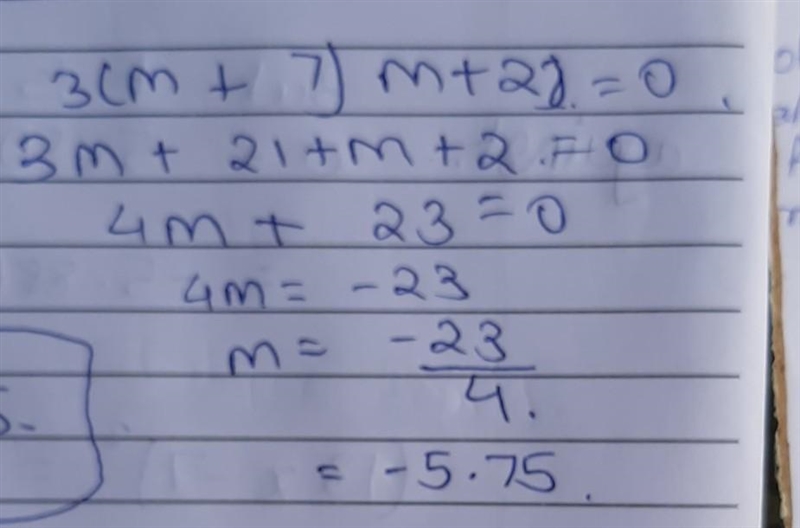 3(m + 7) m+2). = 0
3m + 21 + m + 2 . = 0
4m + 23 = 0
4m = -23
m = -23/4.
= -5.75.